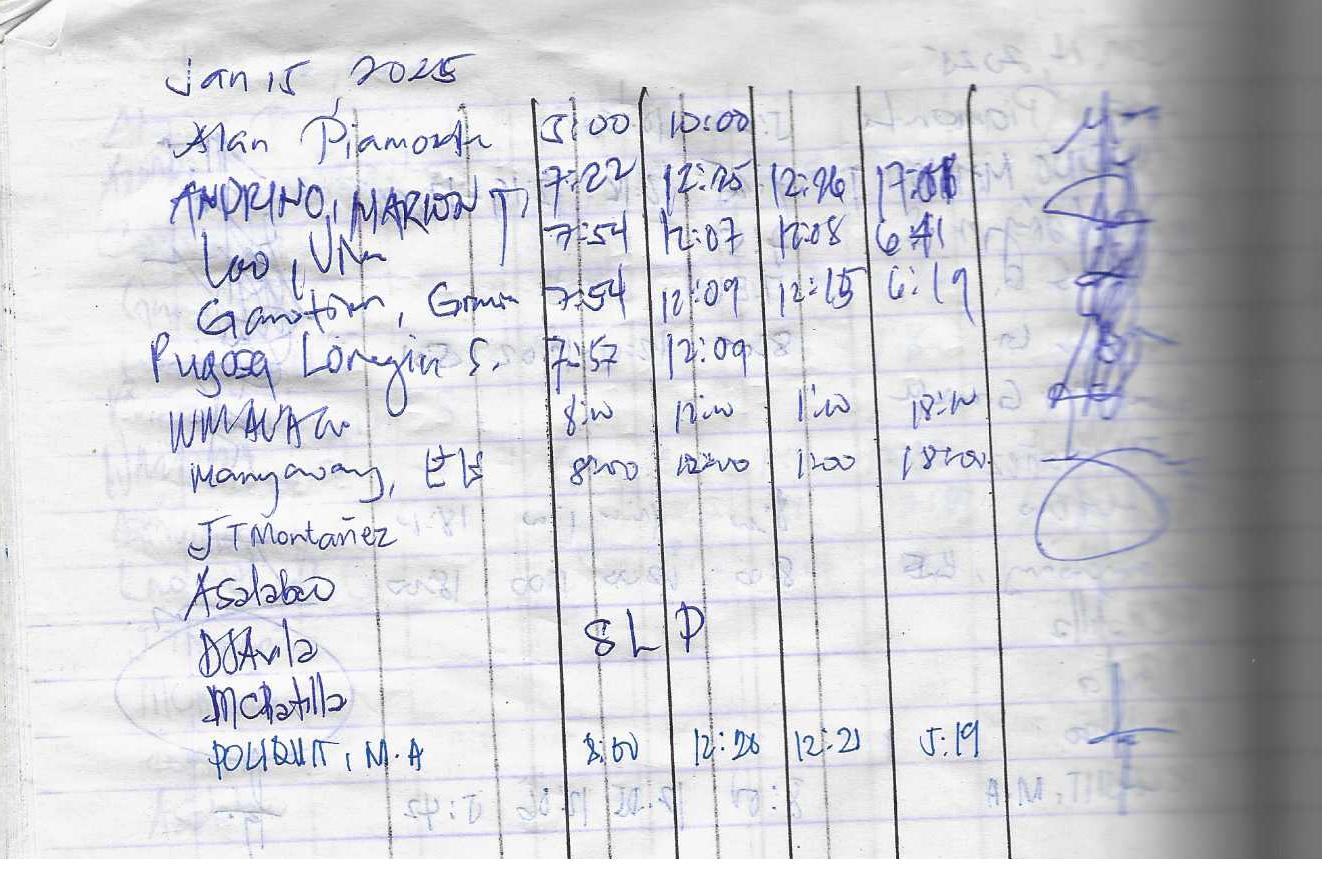 Jan 15, 2025
Alan Piamonte 5:00 10:00
ANDRINO, MARION T. 7:22 12:25 12:26 17:01
Loo, 7:54 12:07 12:08 6:41
7:54 12:09 12:15 6:19
Pugosa Loregin S. 7:57 12:09
8:00 12:00 1:00 18:00
Mangaoang, 8:00 12:00 1:00 18:00
JTMontañez
Asalabao
DJAvila SLP
MCPatilla
POLIQUIT, M.A 8:00 12:20 12:21 5:19